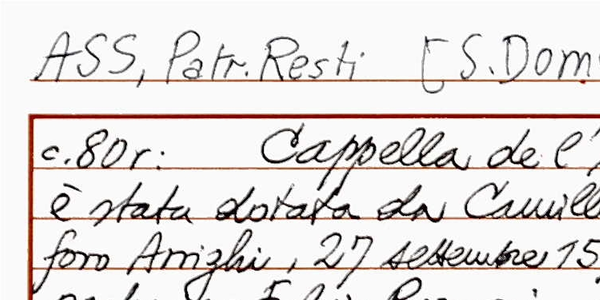 ASS, Patr. Resti [S. Dom
c. 80r: Cappella de l'
è stata dotata da Camill
foro Arrighi, 27 settembre 15